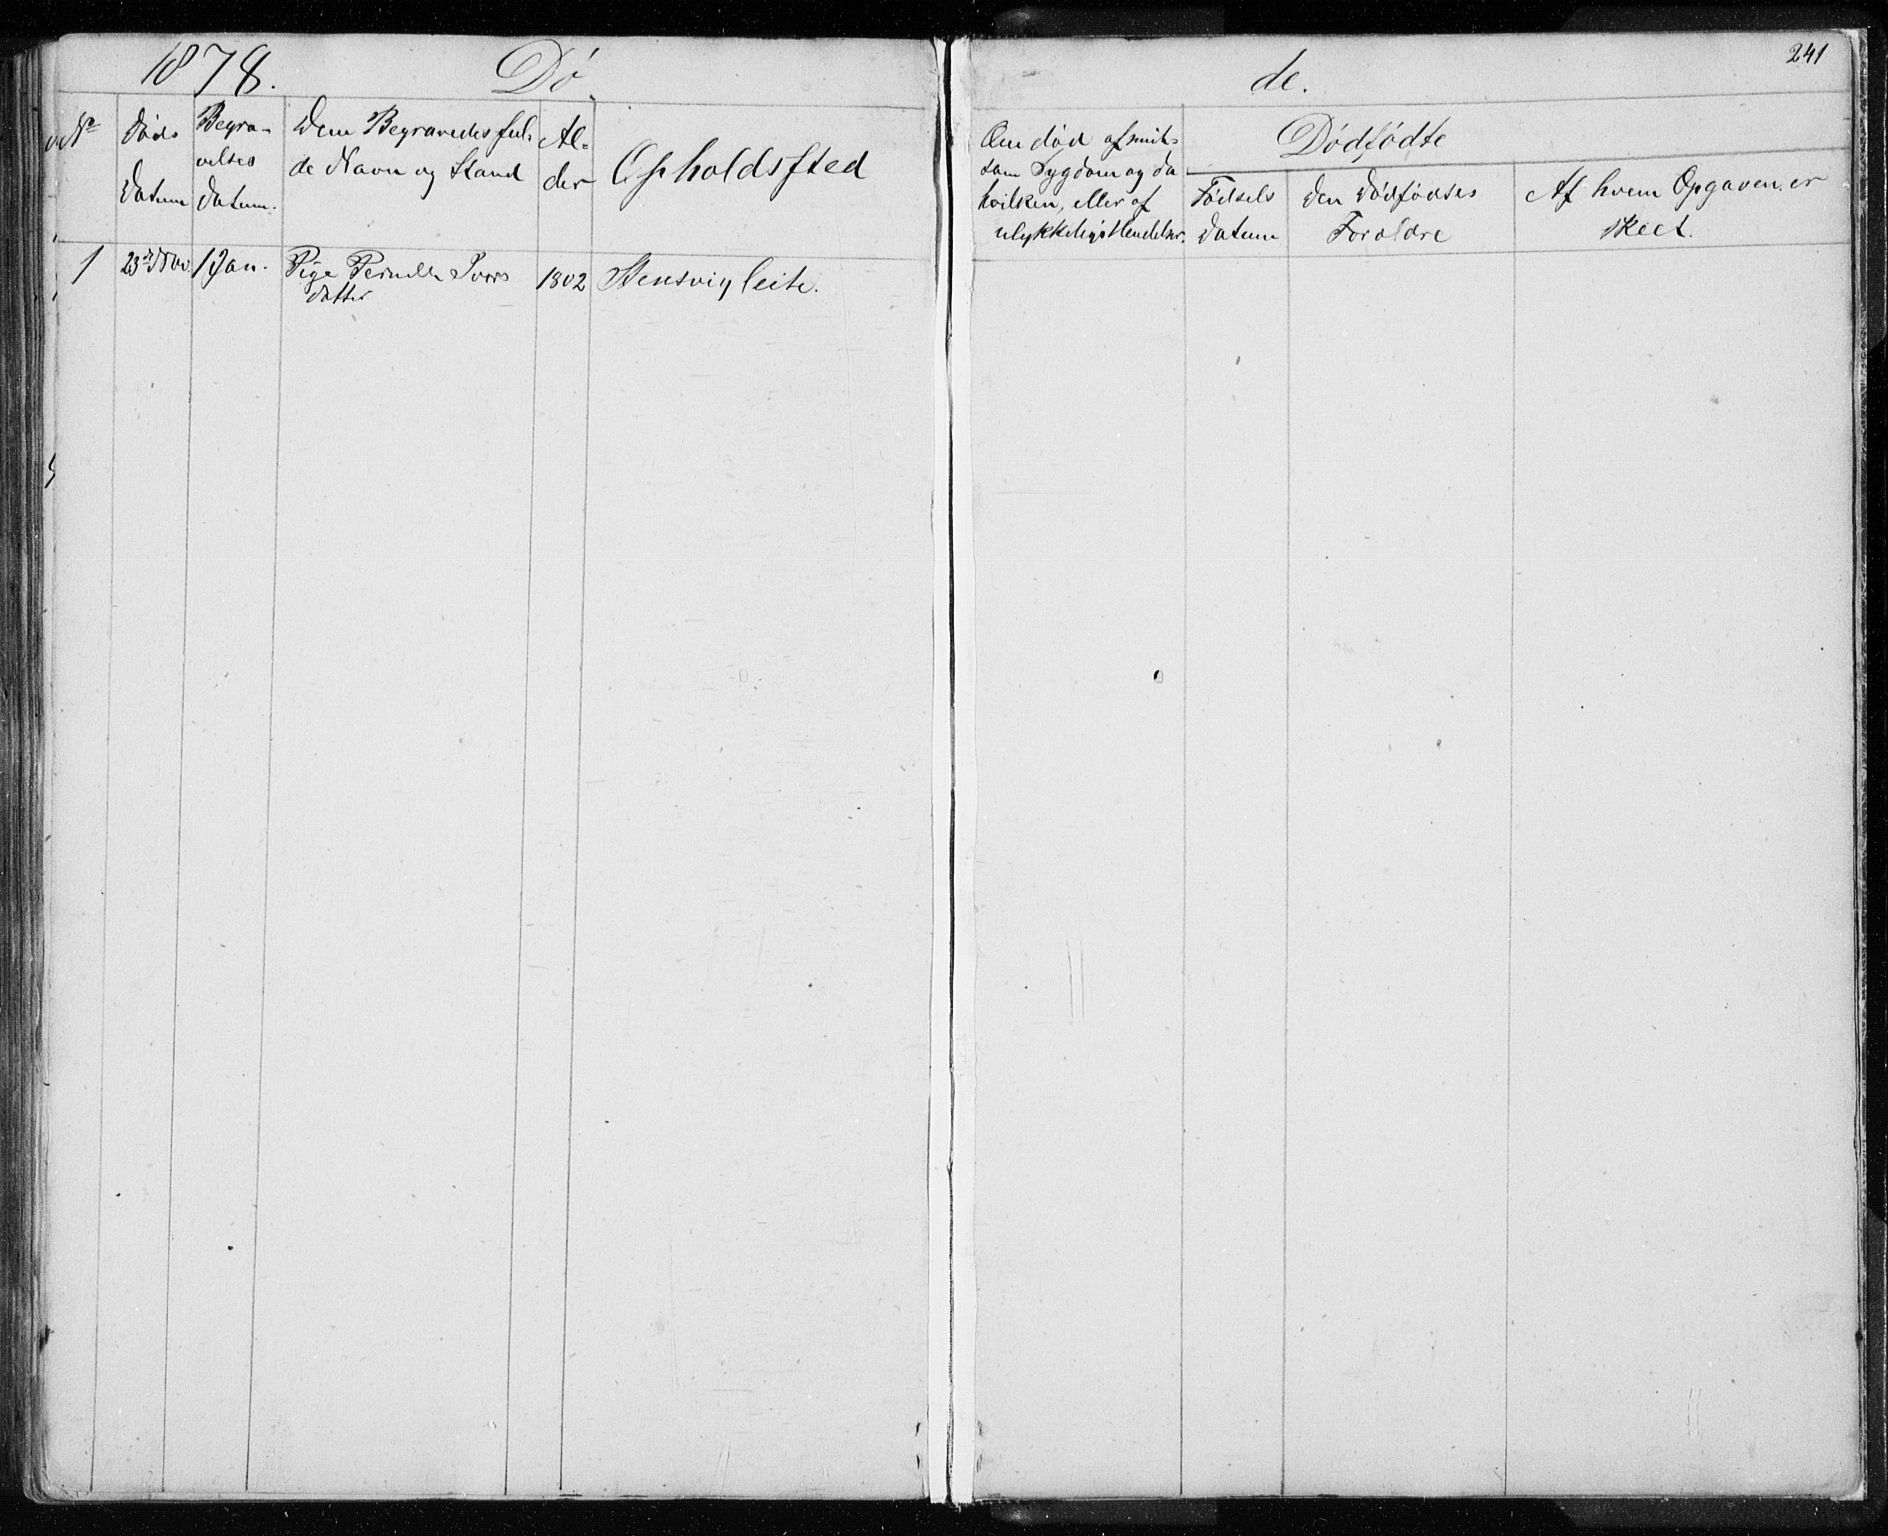 1878. Dø de. 241
No
Døds
Datum
Begra-
velses
Datum.
Dem Begravedes ful-
de Navn og Stand
Al-
der
Opholdssted
Om død af smit-
som Sygdom og da
hvilken, eller af
ulykkelig Hendelse.
Dødfødte
Fødsels
Datum
Den Dødfødtes
Foreldre
Af hvem Opgaven er
skeet.
1 23de Nov. 1 Jan. Pige Pernille Ivers 1802 Stensvigleite.
datter